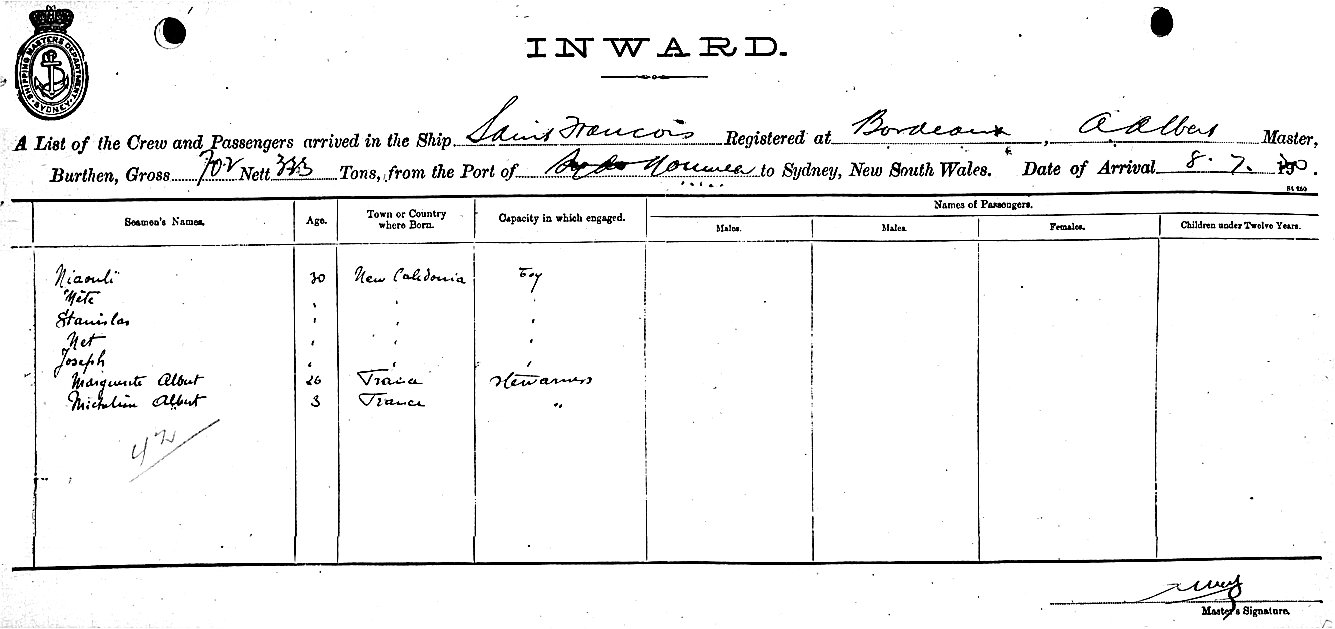 SHIPPING MASTERS DEPARTMENT SYDNEY
INWARD.
A List of the Crew and Passengers arrived in the Ship Saint Francois Registered at Bordeaux, A Albert Master,
Burthen, Gross 702 Nett 333 Tons, from the Port of Noumea to Sydney, New South Wales. Date of Arrival 8. 7. 190
Seamen's Names. Age. Town or Country where Born. Capacity in which engaged. Names of Passengers.
Males. Males. Females. Children under Twelve Years.
Niaouli 30 New Caledonia Boy
Mête " " "
Stanislas " " "
Net " " "
Joseph " " "
Marguerite Albert 26 France Stewarness
Micheline Albert 3 France "
42
Master's Signature.